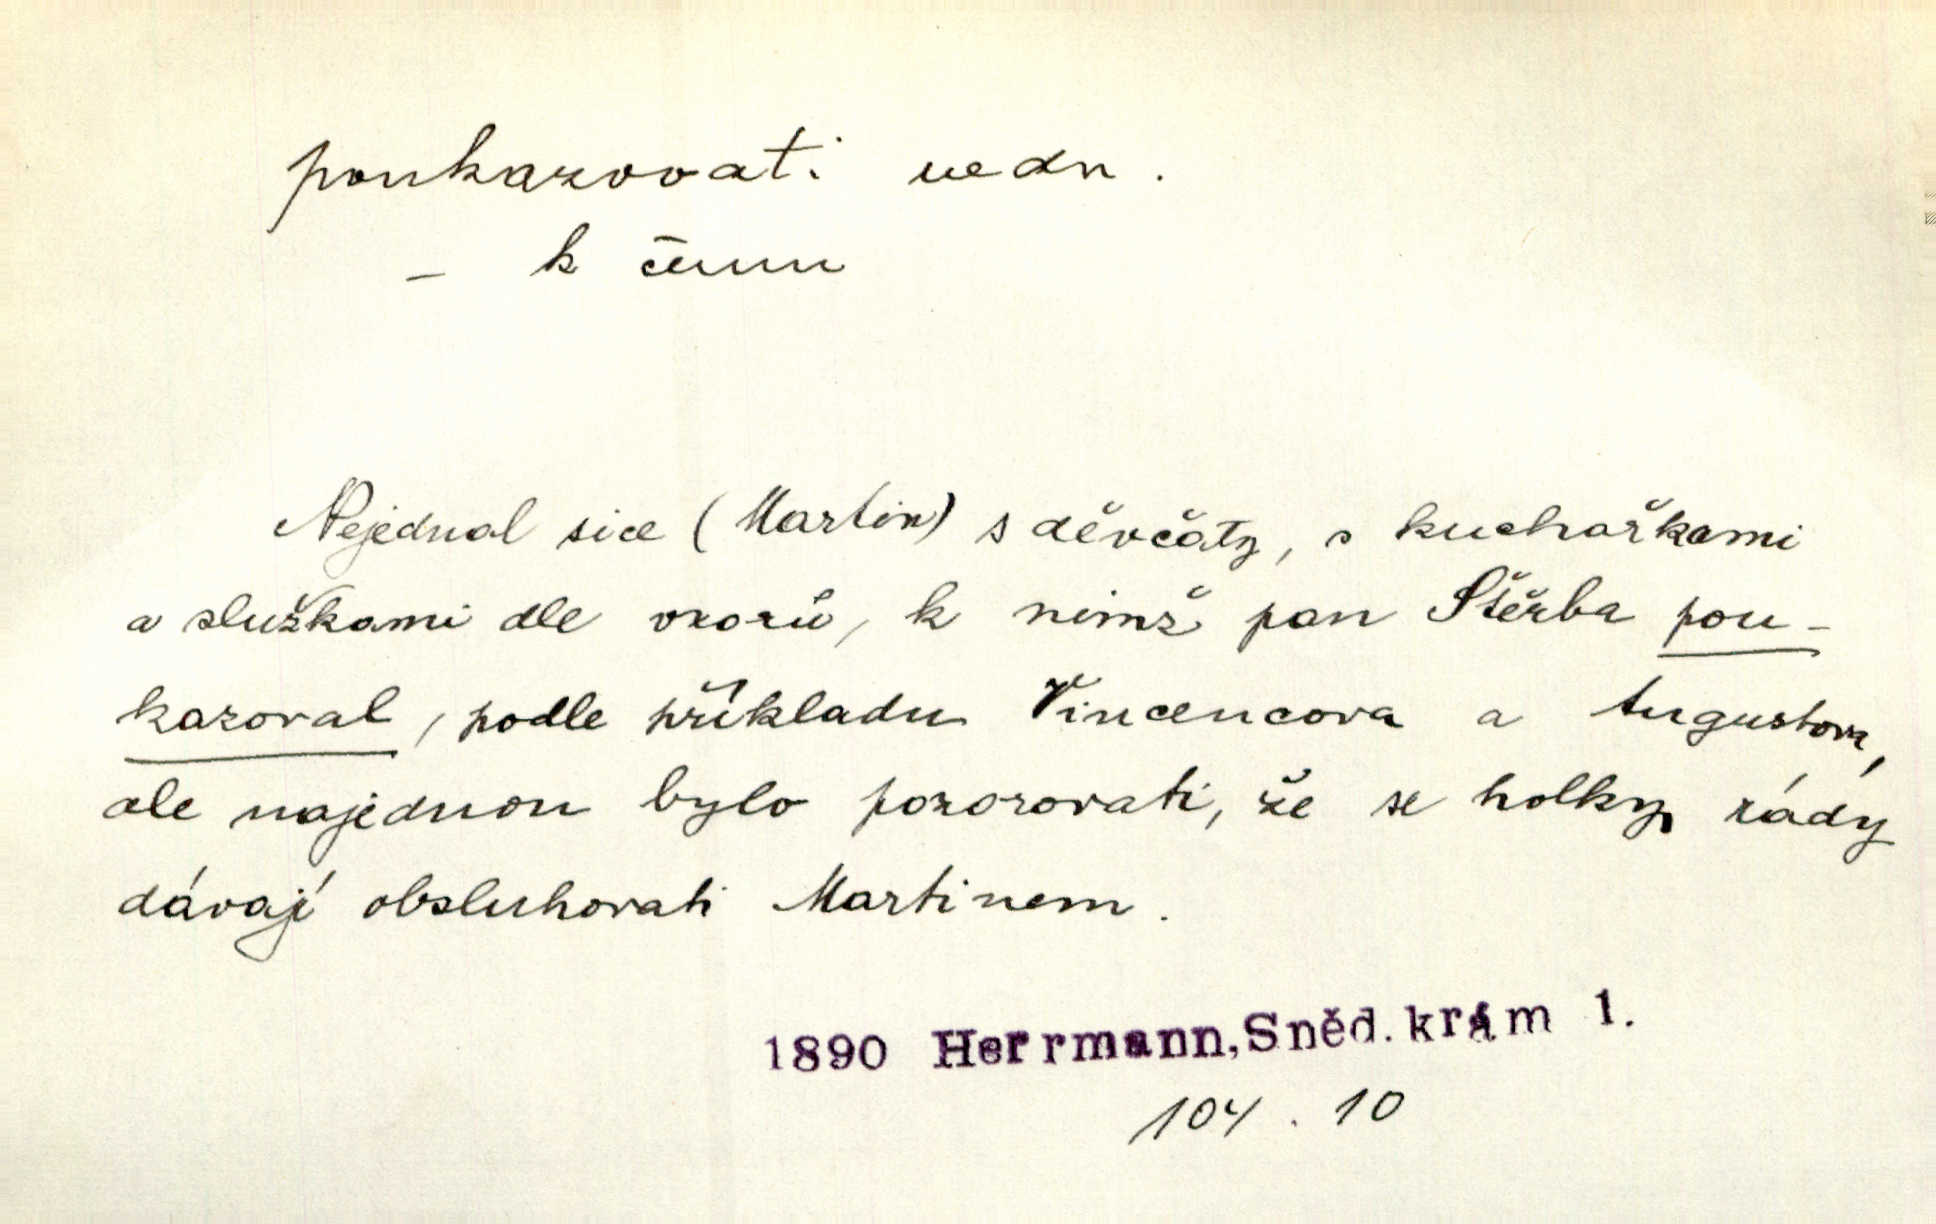 poukazovati nedn.
– k čemu
Nejednal sice (Martin) s děvčaty, s kuchařkami
a služkami dle vzorů, k nimž pan Štěrba pou-
kazoval, podle příkladu Vincencova a Augustova,
ale najednou bylo pozorovati, že se holky rády
dávají obsluhovati Martinem.
1890 Herrmann, Sněd. krám 1.
104. 10